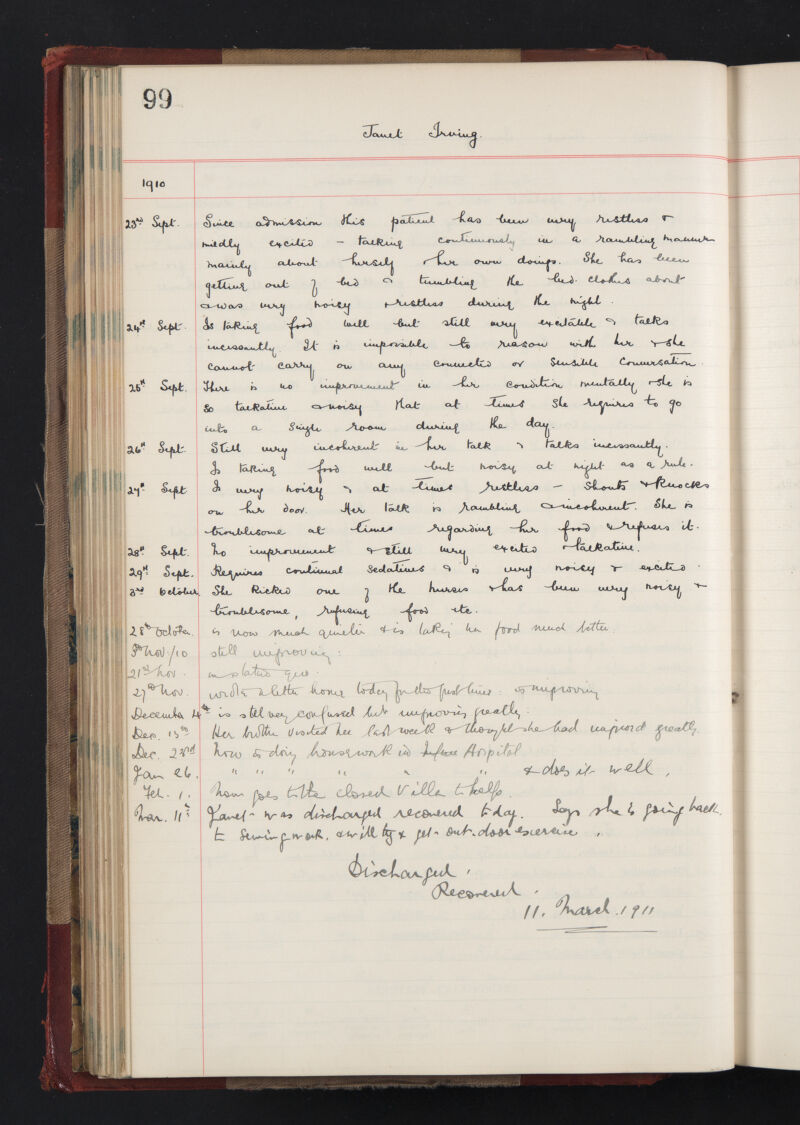 99
Janet Irving.
1910
23rd Sept. Since admission this patient has been very restless &
mildly excited – talking continuously in a rambling manner
mainly about herself & her own doings. She has been
getting out of bed & tumbling the bed-clothes about
& was very noisy & restless during the night.
24th Sept. Is taking food well but still very excitable & talks
incessantly. It is impossible to reason with her & she
cannot carry on any connected or sensible conversation.
25th Sept. There is no improvement in her condition mentally & she is
so talkative & noisy that at times she requires to go
into a single room during the day.
26th Sept. Still very incoherent in her talk & talks incessantly.
Is taking food well but noisy at night as a rule.
27th Sept Is very noisy & at times restless – shouts & knocks
on her door. Her talk is rambling & incoherent. She is
troublesome at times regarding her food & refuses it.
28th Sept. No improvement & still very excited & talkative.
29th Sept. Requires continual sedatives & is very noisy & excited.
3rd October She kicked one of the nurses & has been very noisy &
troublesome, refusing food etc.
28th October is now much quieter & is taking her food much better.
8th Nov/10 still improving:
21st Nov. in statu quo.
27th Nov. wrote a letter home today for the first time. is improving
December 4th is still very confused but improving greatly.
Dec. 13th Her brother visited her last week & thought she had improved greatly.
Dec. 23rd Now is doing housework in Hospital
Jan 26. " " " " " " & does it well,
Feb. 1. Now goes to the closed Villa to help.
Mar. 11th Janet was discharged recovered today. Says she is going back
to sewing work, & will try & get out-door exercise.
Discharged.
Recovered.
11. March. 1911